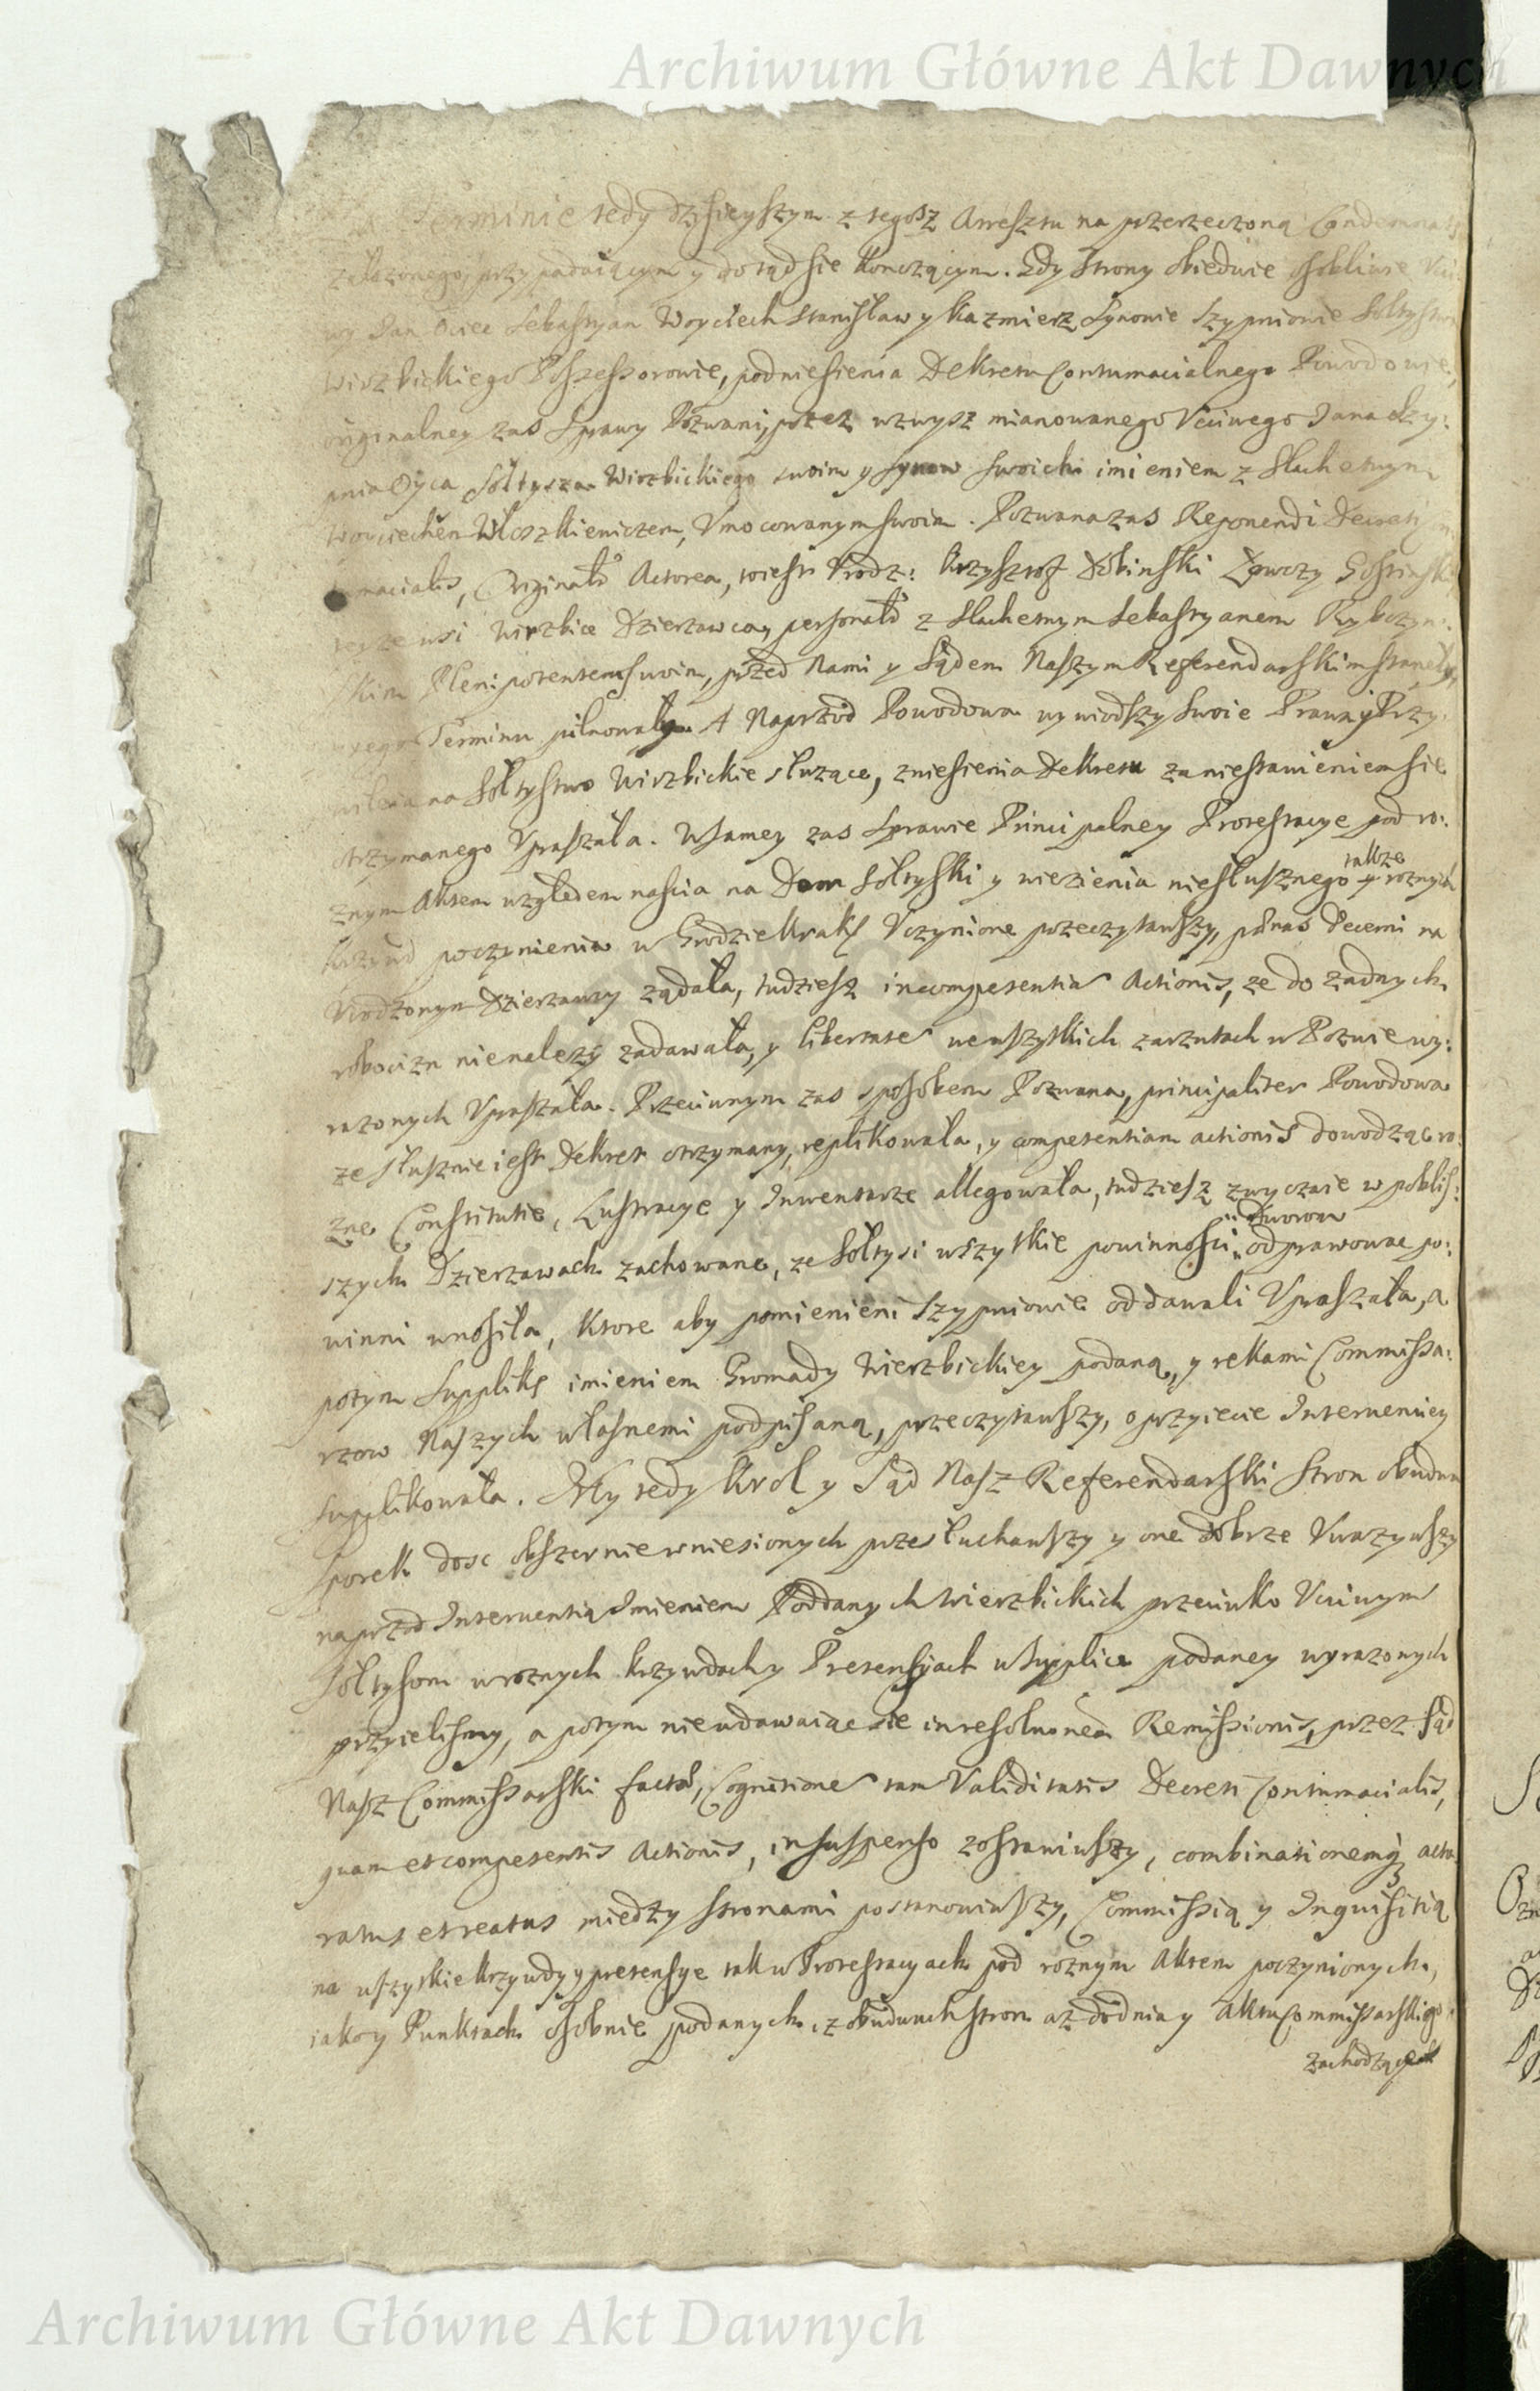 Archiwum Główne Akt Dawnych
Terminie tedy dzisieyszym z tegosz Aresztu na przerzeczoną Condemnat
założonego, przypadaiącym y dotąd sie kończącym. Gdy Strony obiedwie osobliwie
Jan Ociec Sebastyan Woyciech Stanisław y Kazmierz Synowie Szypniowie Sołtystwa
Wirzbickiego Possessorowie, podniesienia Dekretu Contumacialnego Powodowie,
originalney zas Sprawy Pozwani, przez wzwysz mianowanego Vcciwego Jana Szy:
pnia Oyca Sołtysza Wirzbickiego swoim y synow swoich imieniem z Slachetnym
Woyciechem Włoszkiewiczem, Vmocowanym swoim. Pozwana zas Reponendi Decreti
macialis, Originalr Actorea, iest Vrodz: Krzysztof Dobinski Łowczy Gostinski
teyze wsi Wirzbice Dzierzawca, personalr z Slachetnym Sebastyanem Rybczyn:
skim Plenipotentem swoim, przed Nami y Sądem Naszym Referendarskim stanęły,
Terminu pilnowały. A Naprzod Powodowa wywiodszy swoie Prawa y Przy:
wileia na Sołtystwo Wirzbickie słuzące, zniesienia Dekretu za niestawieniem sie
otrzymanego Vpraszała. W samey zas Sprawie Principalney Protestacye pod ro:
znym Aktem względem naścia na Dom Sołtyski y więzienia niesłusznego także y roznych
krzywd poczynienia w Grodzie Kraks Vczynione przeczytawszy, pnas decerni na
Vrodzonym Dzierzawcy ządała, tudziesz incompetentia Actionis, ze do zadnych
robocizn nienalezy zadawała, y libertate we wszytkich zarzutach w Pozwie wy:
razonych Vpraszała. Przeciwnym zas sposobem Pozwana, principaliter Powodowa
ze słusznie iest Dekret otrzymany, replikowała, y competentiam actionis dowodząc ro:
zne Constitutie, Lustracye y Inwentarze allegowała, tudziesz zwyczaie w poblis:
szych Dzierzawach zachowane, ze Sołtysi wszytkie powinności Dworom odprawowac po:
winni wnosiła, ktore aby pomienieni Szypniowie oddawali Vpraszała, a
potym Supplikę imieniem Gromady Wierzbickiey podaną, y rękami Commissa:
rzow Naszych własnemi podpisaną, przeczytawszy, o przyięcie Interveniey
supplikowała. My tedy Krol y Sąd Nasz Referendarski Stron obudwu
sporek dosc obszernie wniesionych przesłuchawszy y one dobrze Vwazywszy
naprzod Interventią Imieniem Poddanych Wierzbickich przeciwko Vcciwym
Sołtysom w roznych krzywdach y Pretensyach w Supplice podaney wyrazonych
przyielismy, a potym nie wdawaiąc sie in resolutionem Remissionis, przez Sąd
Nasz Commissarski factæ, Cognitione tam Validitatis Decreti Contumacialis,
quam et competentis Actionis, in suspenso zostawiwszy, combinationemq actu
ratus et reatus między stronami postanowiwszy, Commissią y Inquisitią
na wszytkie krzywdy y pretensye tak w Protestacyach pod roznym Aktem poczynionych,
iako y Punktach osobnie podanych, z obudwuch stron az do dnia y Aktu Commissarskiego
zachodzących
Archiwum Główne Akt Dawnych